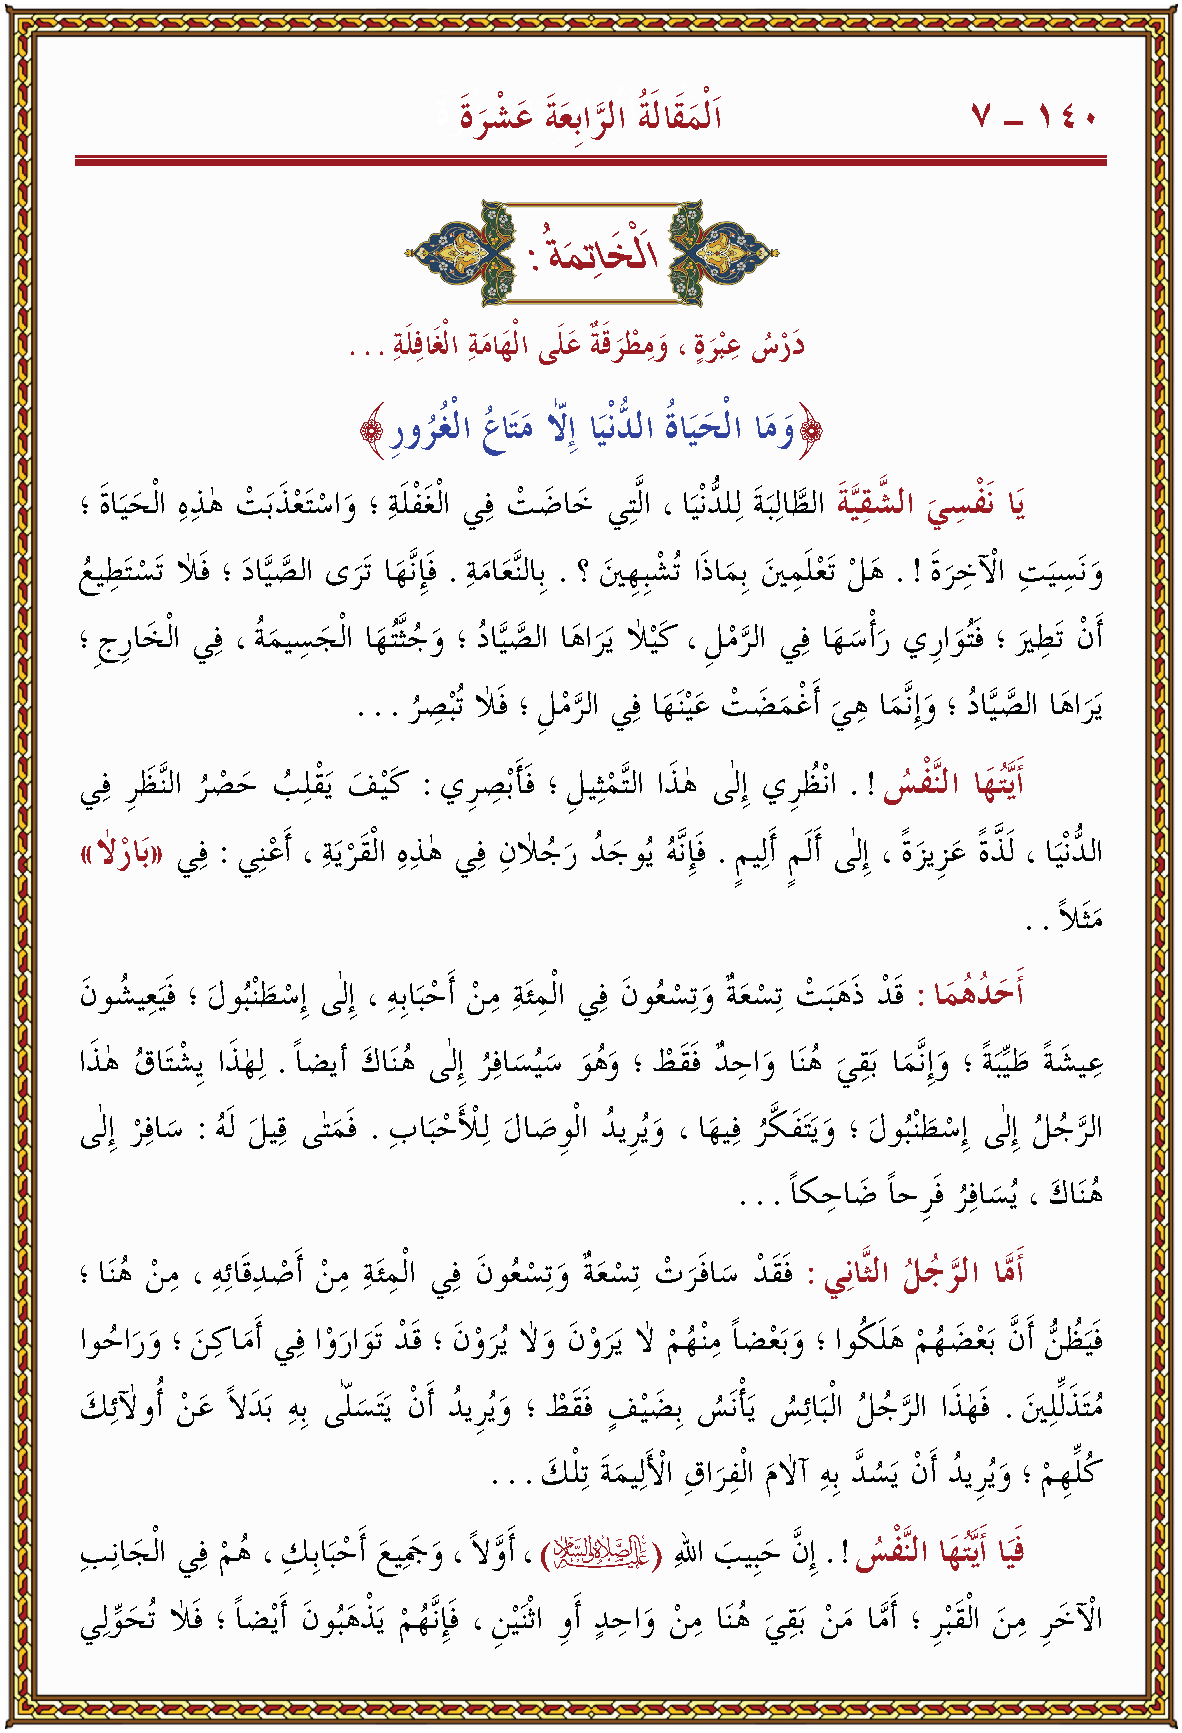 ١٤٠ – ٧
اَلْمَقَالَةُ الرَّابِعَةَ عَشْرَةَ
اَلْخَاتِمَةُ :
دَرْسُ عِبْرَةٍ ، وَمِطْرَقَةٌ عَلَى الْهَامَةِ الْغَافِلَةِ . . .
﴿وَمَا الْحَيَاةُ الدُّنْيَا إِلَّا مَتَاعُ الْغُرُورِ﴾
يَا نَفْسِيَ الشَّقِيَّةَ الطَّالِبَةَ لِلدُّنْيَا ، الَّتِي خَاضَتْ فِي الْغَفْلَةِ ؛ وَاسْتَعْذَبَتْ هٰذِهِ الْحَيَاةَ ؛
وَنَسِيَتِ الْآخِرَةَ ! . هَلْ تَعْلَمِينَ بِمَاذَا تُشْبِهِينَ ؟ . بِالنَّعَامَةِ . فَإِنَّهَا تَرَى الصَّيَّادَ ؛ فَلَا تَسْتَطِيعُ
أَنْ تَطِيرَ ؛ فَتُوَارِي رَأْسَهَا فِي الرَّمْلِ ، كَيْلَا يَرَاهَا الصَّيَّادُ ؛ وَجُثَّتُهَا الْجَسِيمَةُ ، فِي الْخَارِجِ ؛
يَرَاهَا الصَّيَّادُ ؛ وَإِنَّمَا هِيَ أَغْمَضَتْ عَيْنَهَا فِي الرَّمْلِ ؛ فَلَا تُبْصِرُ . . .
أَيَّتُهَا النَّفْسُ ! . انْظُرِي إِلَى هٰذَا التَّمْثِيلِ ؛ فَأَبْصِرِي : كَيْفَ يَقْلِبُ حَصْرُ النَّظَرِ فِي
الدُّنْيَا ، لَذَّةً عَزِيزَةً ، إِلَى أَلَمٍ أَلِيمٍ . فَإِنَّهُ يُوجَدُ رَجُلَانِ فِي هٰذِهِ الْقَرْيَةِ ، أَعْنِي : فِي «بَارْلَا»
مَثَلاً . .
أَحَدُهُمَا : قَدْ ذَهَبَتْ تِسْعَةٌ وَتِسْعُونَ فِي الْمِئَةِ مِنْ أَحْبَابِهِ ، إِلَى إِسْطَنْبُولَ ؛ فَيَعِيشُونَ
عِيشَةً طَيِّبَةً ؛ وَإِنَّمَا بَقِيَ هُنَا وَاحِدٌ فَقَطْ ؛ وَهُوَ سَيُسَافِرُ إِلَى هُنَاكَ أيضاً . لِهٰذَا يِشْتَاقُ هٰذَا
الرَّجُلُ إِلَى إِسْطَنْبُولَ ؛ وَيَتَفَكَّرُ فِيهَا ، وَيُرِيدُ الْوِصَالَ لِلْأَحْبَابِ . فَمَتَى قِيلَ لَهُ : سَافِرْ إِلَى
هُنَاكَ ، يُسَافِرُ فَرِحاً ضَاحِكاً . . .
أَمَّا الرَّجُلُ الثَّانِي : فَقَدْ سَافَرَتْ تِسْعَةٌ وَتِسْعُونَ فِي الْمِئَةِ مِنْ أَصْدِقَائِهِ ، مِنْ هُنَا ؛
فَيَظُنُّ أَنَّ بَعْضَهُمْ هَلَكُوا ؛ وَبَعْضاً مِنْهُمْ لَا يَرَوْنَ وَلَا يُرَوْنَ ؛ قَدْ تَوَارَوْا فِي أَمَاكِنَ ؛ وَرَاحُوا
مُتَذَلِّلِينَ . فَهٰذَا الرَّجُلُ الْبَائِسُ يَأْنَسُ بِضَيْفٍ فَقَطْ ؛ وَيُرِيدُ أَنْ يَتَسَلَّى بِهِ بَدَلاً عَنْ أُولَآئِكَ
كُلِّهِمْ ؛ وَيُرِيدُ أَنْ يَسُدَّ بِهِ آلَامَ الْفِرَاقِ الْأَلِيمَةَ تِلْكَ . . .
فَيَا أَيَّتُهَا النَّفْسُ ! . إِنَّ حَبِيبَ اللهِ (عَلَيْهِ الصَّلَاةُ وَالسَّلَامُ) ، أَوَّلاً ، وَجَمِيعَ أَحْبَابِكِ ، هُمْ فِي الْجَانِبِ
الْآخَرِ مِنَ الْقَبْرِ ؛ أَمَّا مَنْ بَقِيَ هُنَا مِنْ وَاحِدٍ أَوِ اثْنَيْنِ ، فَإِنَّهُمْ يَذْهَبُونَ أَيْضاً ؛ فَلَا تُحَوِّلِي